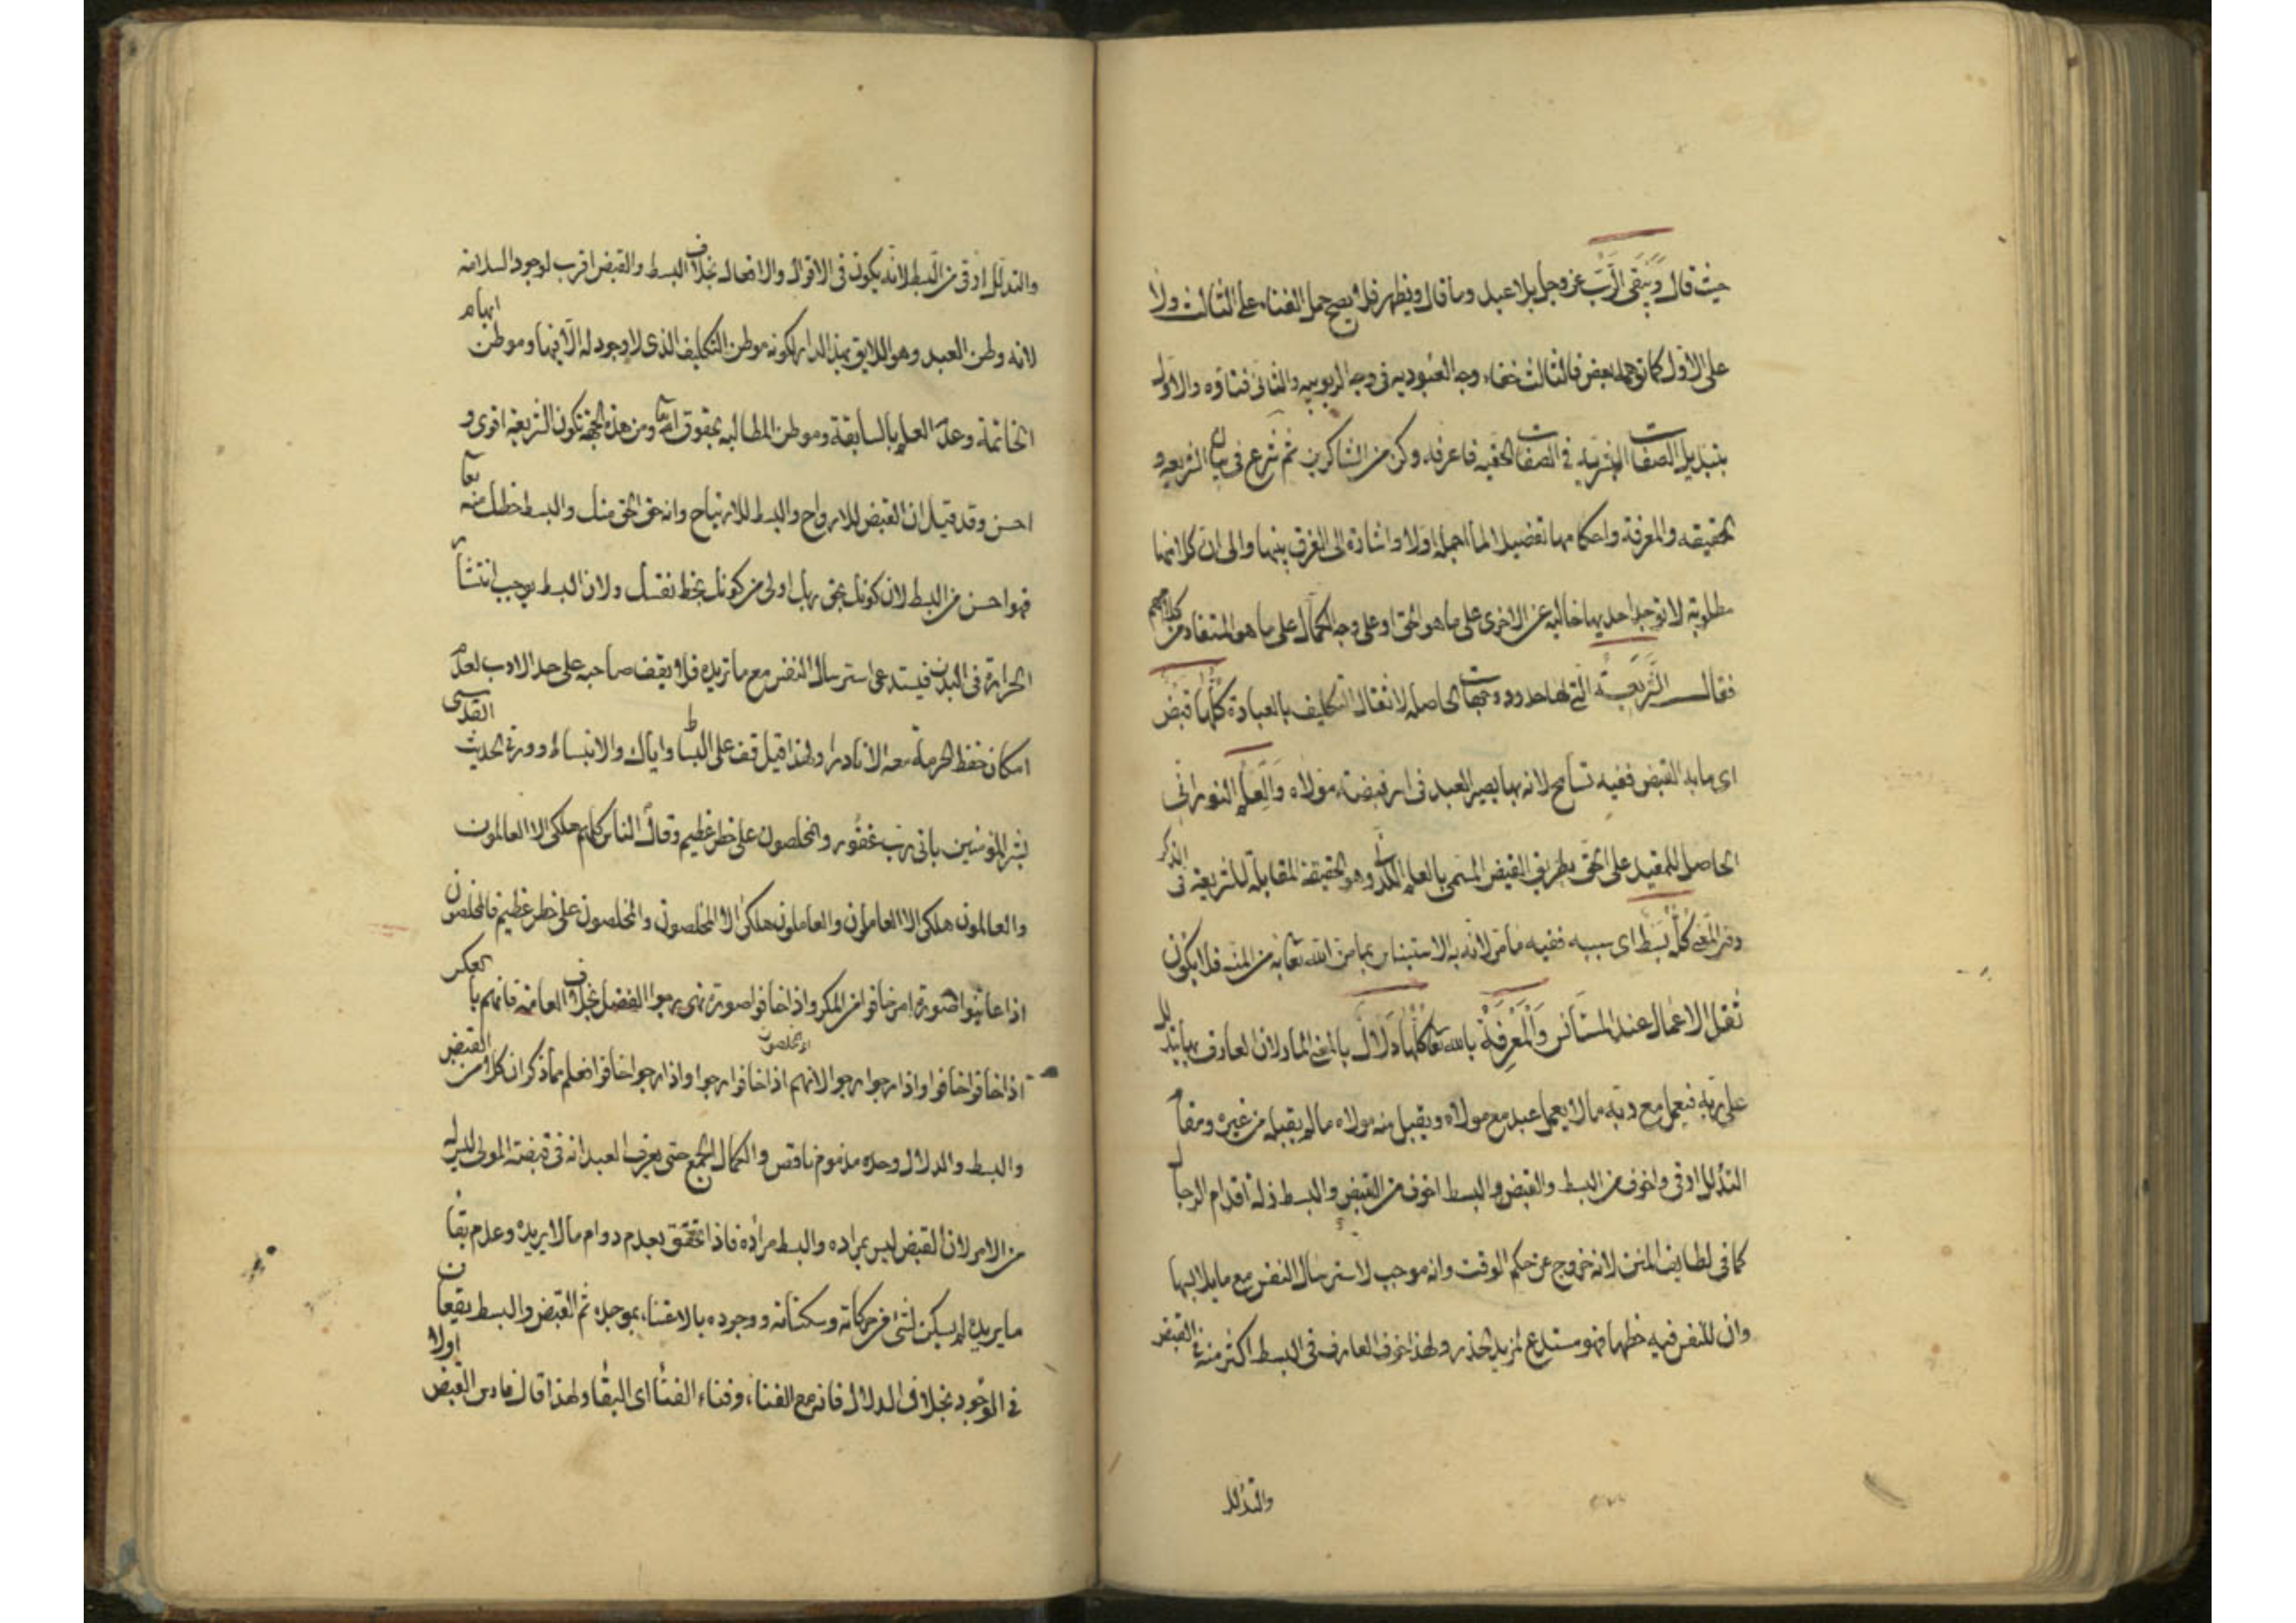 حيث قال ويبقى الرب عز وجل بلا عبد وما قال ويظهر فلا يصح حمل الفناء على الثالث ولا
على الاول كما توهمه بعض فالثالث خفاء وجه العبوديه فى وجه الربوبيه والثانى فناوه والاول
بتبديل الصفات البشريه فى الصفات الحقيه فاعرفه وكن من الشاكرين ثم شرع فى بيان الشريعه و
الحقيقه والمعرفة واحكامها تفصيلا لما اجمله اولا واشارة الى الفرق بينها والى ان كلا منها
مطلوبة لا توجد احديها خالية عن الاخرى على ما هو الحق او على وجه الكمال على ما هو المتفاد من كلامهم
فقال الشريعة التى لها حدود وجهات الحاصله لانفعال التكليف بالعبادة كلها قبض
اى ما به القبض ففيه تسامح لانه بها يصير العبد فى اسر قبضة مولاه والعلم النورانى
الحاصل للمقيد على الحق بطريق الفيض المسمى بالعلم اللدنى وهو الحقيقة المقابلة للشريعة فى الذكر
وفى المعنى كله بسط اى سببه ففيه مامر لانه به الاستيناس بما من الله تعا به من المنه فلا يكون
ثقل الاعمال عند المستانس والمعرفة بالله تعا كلها دلال بالمعنى المار لان العارف بها يتدلل
على ربه فيعمل مع ربه ما لا يعمل عبد مع مولاه ويقبل منه مولاه ما لم يقبله من غيره ومقام
التدلل اوقى واخوف من البسط والقبض والبسط اخوف من القبض والبسط ذلة اقدام الرجال
كما فى لطايف المنن لانه خروج عن حكم الوقت وانه موجب لاسترسال النفس مع ما يلايمها
وان للنفس فيه حظها فهو مستدع لمزيد الحذر ولهذا خوف العارف فى البسط اكثر منه فى القبض
والتدلل
والتدلل اوقى من البسط لانه يكون فى الاقوال والافعال بخلاف البسط والقبض اقرب لوجود السلامة
لانه وطن العبد وهو اللايق بهذا الدار لكونه موطن التكليف الذى لا وجود له الا فيها وموطن ابهام
الخاتمة وعدم العلم بالسابقة وموطن المطالبه بحقوق الله تعا ومن هذه الجهة تكون الشريعة اقوى و
احسن وقد قيل ان القبض للارواح والبسط للارتياح وانه حق الحق منك والبسط حظك منه تعا
فهو احسن من البسط لان كونك بحق ربك اولى من كونك بحظ نفسك ولان البسط يوجب انتشار
الحرارة فى البدن فيستدعى استرسال النفس مع ما تريده فلا يقف صاحبه على حد الادب لعدم
امكان حفظ الحرمة معه الا نادرا ولهذا قيل قف على البساط واياك والانبساط وورد فى الحديث القدسى
بشر المؤمنين بانى رب غفور والمخلصون على خطر عظيم وقال الناس كلهم هلكى الا العالمون
والعالمون هلكى الا العاملون والعاملون هلكى الا المخلصون والمخلصون على خطر عظيم فالمخلصون
اذا عاينوا صورة امر خافوا من المكر واذا خافوا صورة نهى رجوا الفضل بخلاف العامة فانهم بالعكس
اذا خافوا خافوا واذا رجوا رجوا لانهم اى المخلصون اذا خافوا رجوا واذا رجوا خافوا فعلم مما ذكر ان كلا من القبض
والبسط والدلال وحده مذموم ناقص والكمال الجمع حتى يعرف العبد انه فى قبضة المولى ليس له
من الامر لان القبض ليس بمراده والبسط مراده فاذا تحقق بعدم دوام ما لا يريده وعدم بقاء
ما يريده لم يسكن لشئ فى حركاته وسكناته ووجوده بالاعتناء بموجده ثم القبض والبسط يقعان اولا
فى الوجود بخلاف الدلال فانه مع الفناء وفناء الفناء اى البقاء ولهذا قال فادس القبض